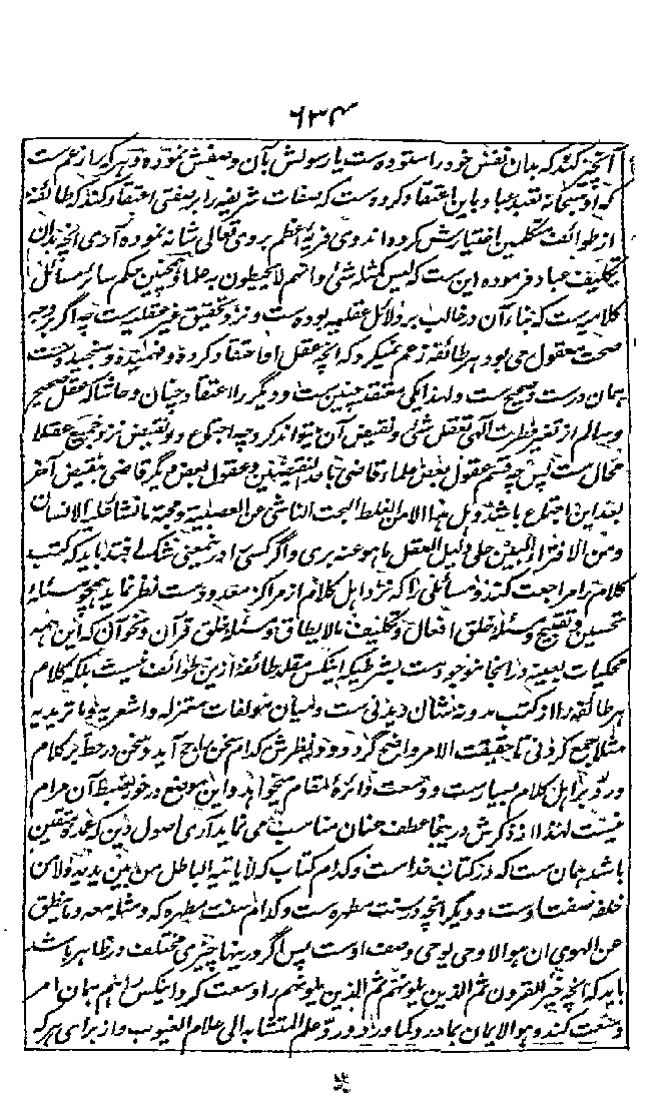 ۶۳۴
آنچیز کند که بدان نفس خود را ستوده ست یا رسولش بآن وصفش نموده و هر که را زعم ست
که او سبحانه تعبد عباد باین اعتقاد کرده ست که صفات شریفه را بر صفتی اعتقاد کنند که طائفهٔ
از طوائف متکلمین اختیارش کرده اند وی فریهٔ اعظم بر وی تعالی شانه نموده آری آنچه بدان
تکلیف عباد فرموده این ست که لیس کمثله شیء و انهم لا یحیطون به علما و همچنین حکم سائر مسائل
کلامیه ست که بناء آن در غالب بر دلائل عقلیه بوده ست و نزد تحقیق غیر عقلیه ست چه اگر بر وجه
صحت معقول می بود هر طائفه زعم نمیکرد که آنچه عقل او اعتقاد کرده و فهمیده و سنجیده ست
همان درست و صحیح ست و لهذا یکی معتقد چنین ست و دیگر را اعتقاد چنان و حاشا که عقل صحیح
و سالم از تغیر فطرت الهی تعقل شیء و نقیض آن بتواند کرد چه اجتماع دو نقیض نزد جمیع عقلا
محال ست پس چه قسم عقول بعض علماء قاضی باحد النقیضین و عقول بعض دیگر قاضی بنقیض آخر
بعد این اجتماع باشد و بل هذا الا من الغلط البحت الناشی عن العصبیة و محبة ما نشأ علیه الانسان
و من الافتراء البین علی دلیل العقل ما هو عنه بری و اگر کسی را درین معنی شک افتد باید که کتب
کلام را مراجعت کند و مسائلی را که نزد اهل کلام از مراکز معدود ست نظر نماید همچو مسئلهٔ
تحسین و تقبیح و مسئلهٔ خلق افعال و تکلیف ما لا یطاق و مسئلهٔ خلق قرآن و نحو آن که این همه
محکیات بعینه در آنجا موجود ست بشرطیکه اینکس مقلد طائفهٔ ازین طوائف نیست بلکه کلام
هر طائفه را از کتب مدونه شان دیدنی ست و میان مؤلفات معتزله و اشعریه و ماتریدیه
مثلا جمع کردنی تا حقیقت الامر واضح گردد و در نظرش کدام سخن راجح آید و سخن در حط بر کلام
و رد بر اهل کلام بسیار ست و وسعت دائرهٔ مقام میخواهد و این موضع درخور ضبط آن مرام
نیست لهذا از ذکرش درینجا عطف عنان مناسب می نماید آری اصول دین که عمدهٔ متقین
باشد همان ست که در کتاب خداست و کدام کتاب که لا یأتیه الباطل من بین یدیه و لا من
خلفه صفت اوست و دیگر آنچه در سنت مطهره ست و کدام سنت مطهره که و مثله معه و ما ینطق
عن الهوی ان هو الا وحی یوحی وصف اوست پس اگر درینها چیزی مختلف در ظاهر باشد
باید که آنچه خیر القرون ثم الذین یلونهم ثم الذین یلونهم را وسعت کرد اینکس را هم همان امر
وسعت کند و هو الایمان بما ورد کما ورد و رد علم المتشابه الی علام الغیوب و از برای هر که